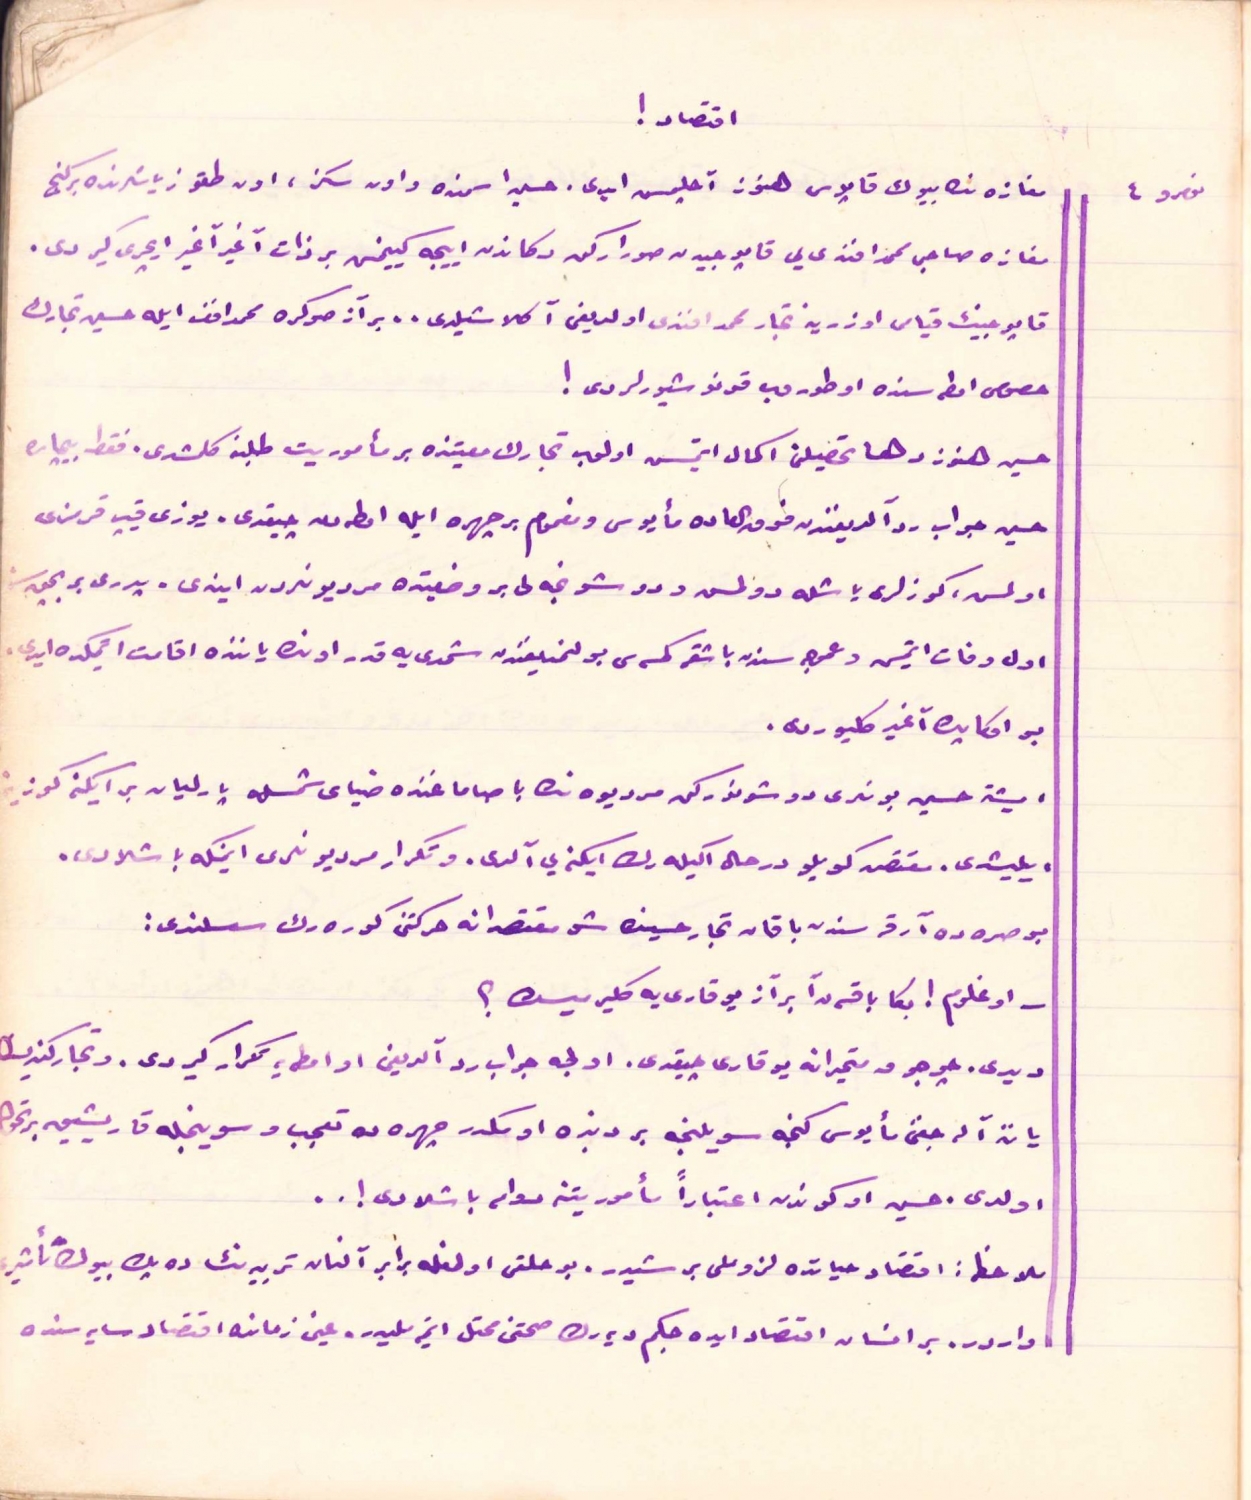 اقتصاد !
نومرو ٤
مغازه نك بيوك قاپوسى هنوز آچلمس ايدى. حسين اسمنده و اون سكز ، اون طقوز ياشلرنده بر كنج
مغازه صاحبى محمد افندى يى قاپوجيدن صورارکن دكاندن اييجه گيينمش بر ذات آغير آغير ايچرى كيردى .
قاپوجينك قياسى اوزرينه تجار محمد افندى اولديغى آكلاشيلدى .. بر آز صوكره محمد افندى ايله حسين تجارك
خصوصى اوطه سنده اوطوروب قونوشيورلردى !
حسين هنوز دها تحصيلنى اكمال ايتمس اولوب تجارك معيتنده بر مأموريت طلبنه كلمشدى . فقط بيچاره
حسين جواب رد آلديغندن فوق العاده مأيوس و مغموم بر چهره ايله اوطه دن چيقدى . يوزى قيپ قرمزى
اولمس ، كوزلرى ياشله دولمس و دوشونجه لى بر وضعيتده مرديونلردن ايندى . پدرى بر بچق سنه
اول وفات ايتمس و عموجه سندن باشقه كمسه سى بولنمديغندن شمدى يه قدر اونك ياننده اقامت ايتمكده ايدى .
بو اوكا پك آغير كليوردى .
ايشته حسين بونلرى دوشونوركن مرديوه نك باصاماغنده ضياى شمسله پارليان بر ايكنه كوزينه
ايليشدى . مقتصد كويلو درحال اكيله رك ايكنه يى آلدى . و تكرار مرديونلرى اينمكه باشلادى .
بو صره ده آرقه سندن باقان تجار حسينك شو مقتصدانه حركتنى كوره رك سسلندى :
ــ اوغلوم ! بكا باقسه ڭ آ بر آز يوقارى يه كليرميسك ؟
ديدى . چوجوق متحيرانه يوقارى چيقدى . اولجه جواب رد آلديغى او اوطه يه تكرار كيردى . و تجار كنديسنى
يانه آله جغنى مأيوس كنجه سويلينجه بردنبره او مكدر چهره ده تعجب و سوينجله قاريشيق بر تحول
اولدى . حسين او كوندن اعتباراً مأموريتنه دوامه باشلادى !..
ملاحظه : اقتصاد حياتده لزوملى بر شيدر . بو خلقى اولمغله برابر آلنان تربيه نك ده پك بيوك تأثيرى
واردر . بر انسان اقتصاد ايده جكم ديه رك صحتنى مختل ايتمه مليدر . عين زمانده اقتصاد سايه سنده